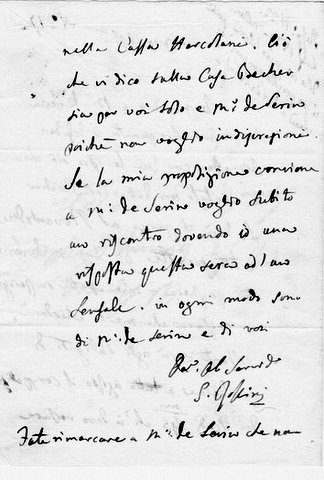 nella Cassa Hercolani. Ciò
che vi dico sulla Casa
sia per voi solo e Mr. de Serin
poiché non voglio indisposizioni.
Se la mia proposizione conviene
a Mr. de Serin voglio subito
un riscontro dovendo io una
risposta questa sera ad un
Sensale. in ogni modo sono
di Mr. de Serin e di voi
Servid
G. Rossini
Fate rimarcare a Mr. de Serin che non